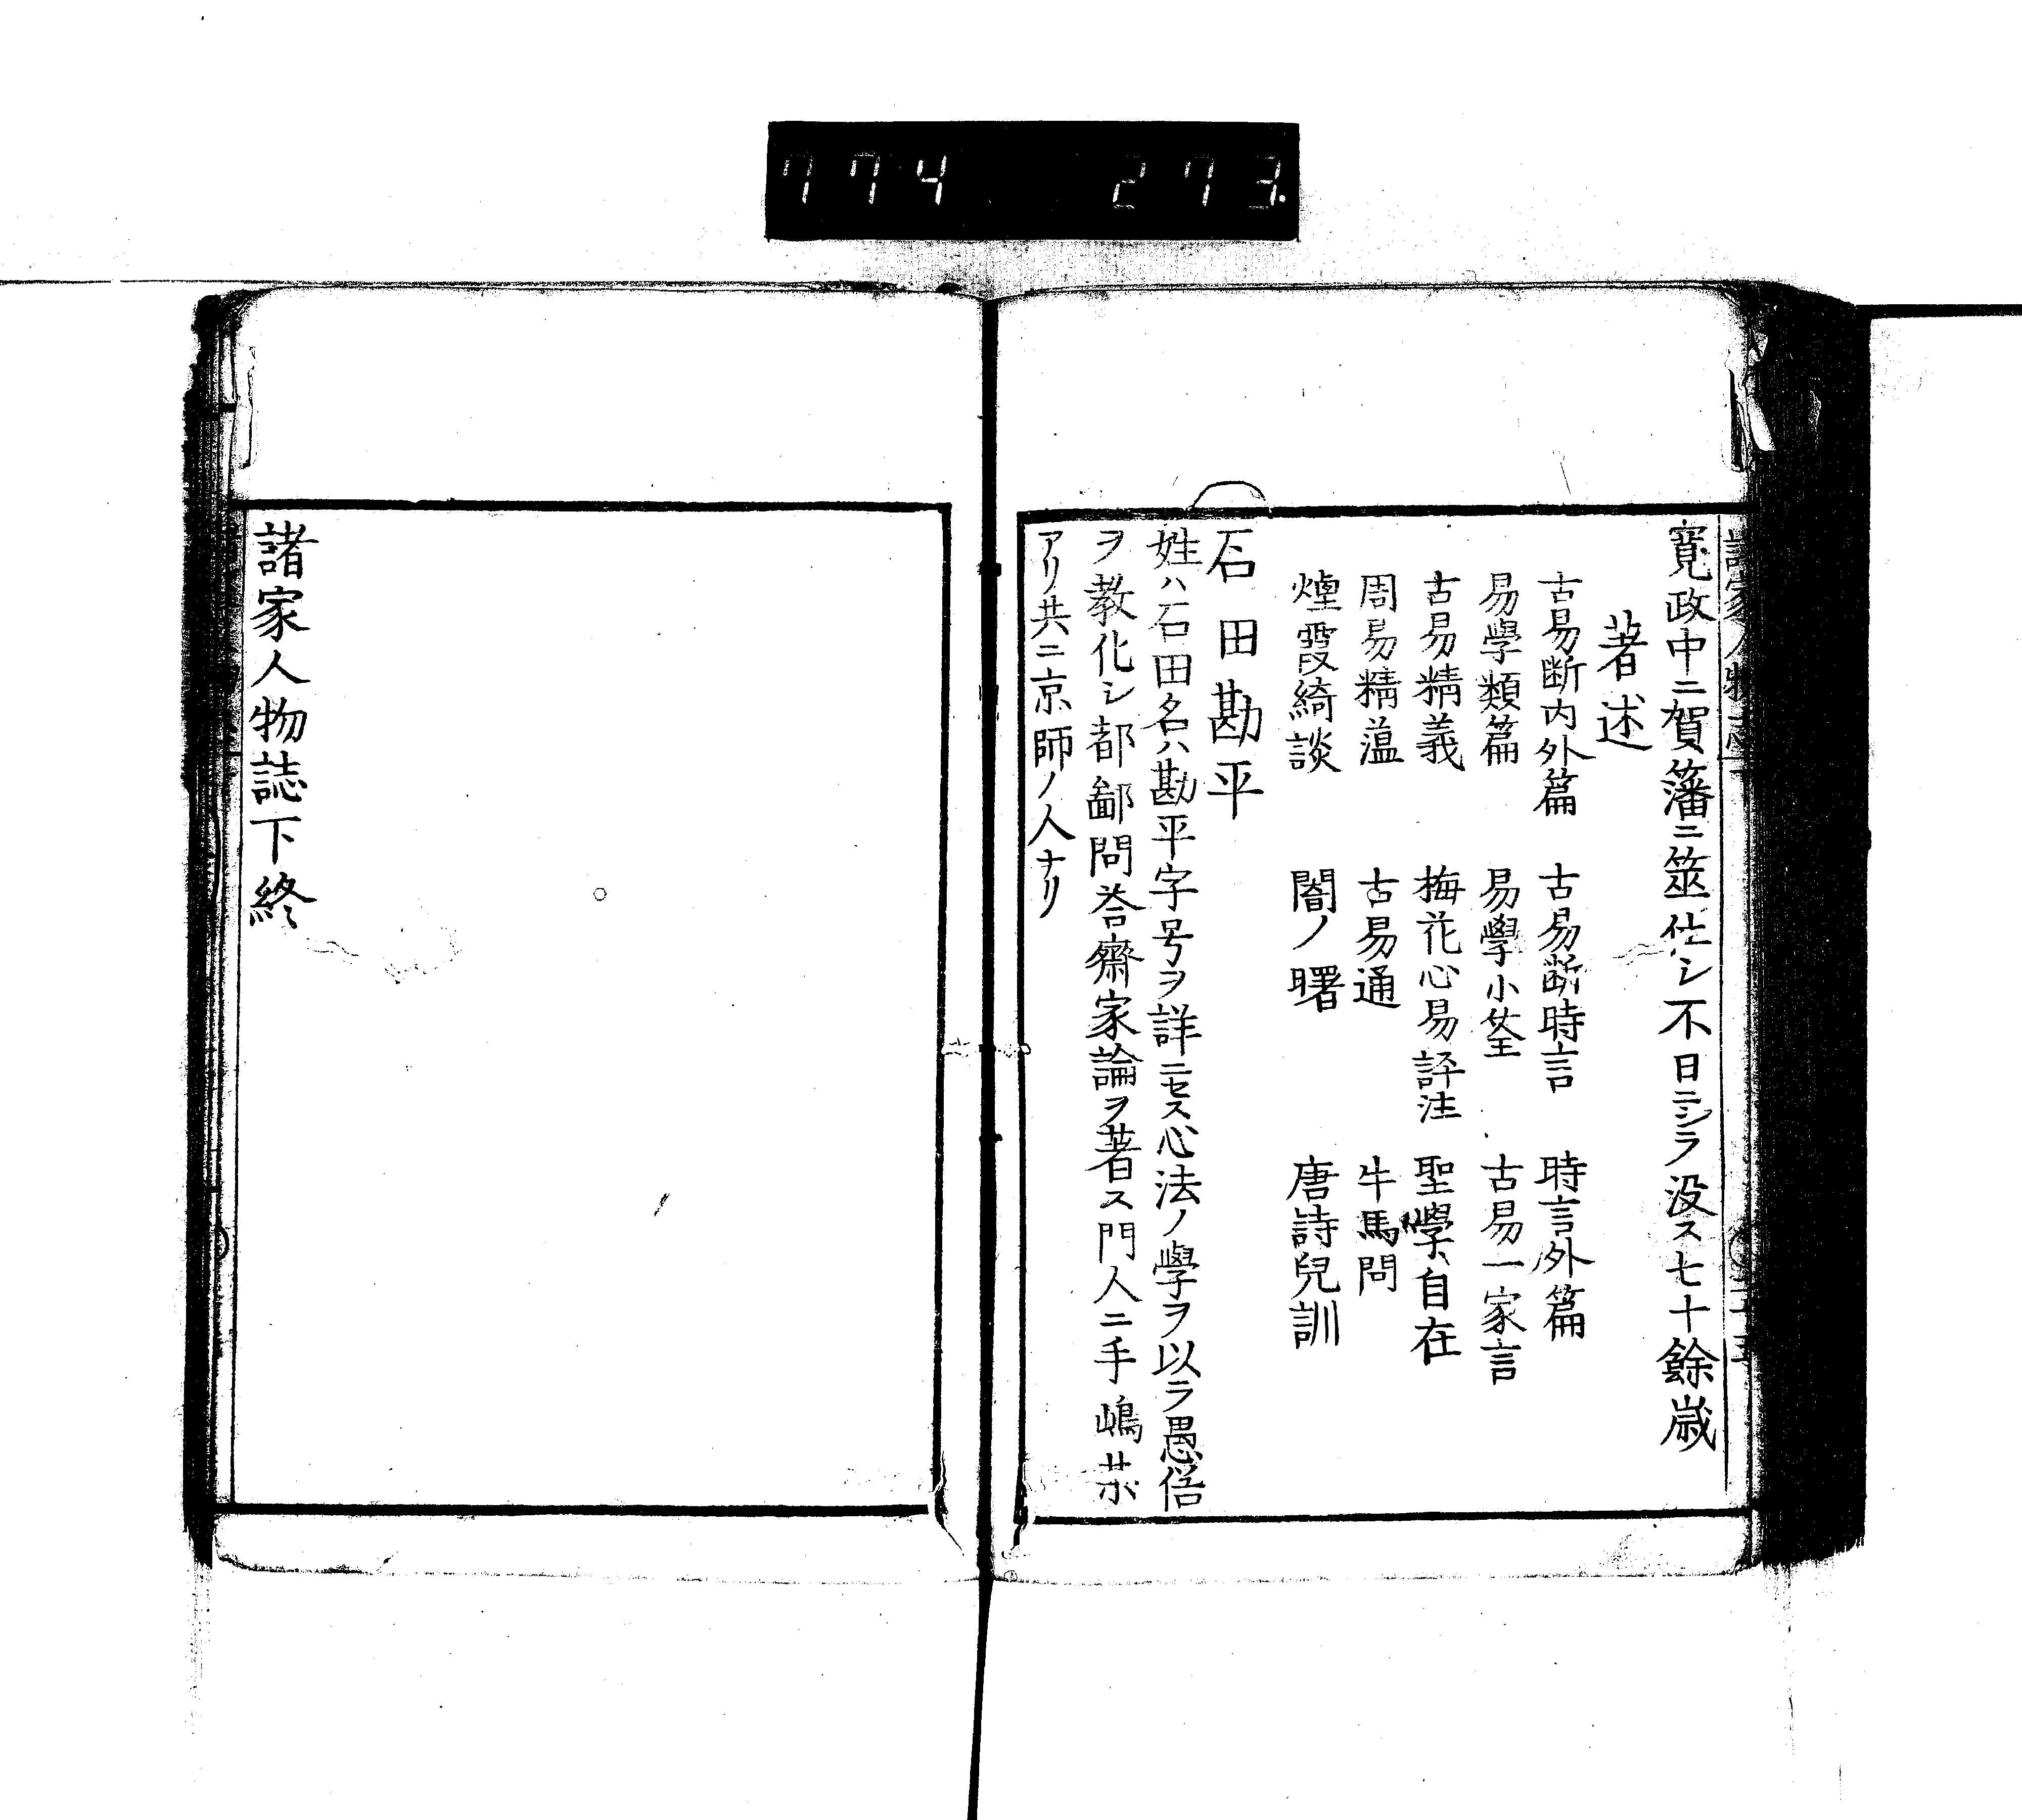 774 273.
寛政中ニ賀藩ニ筮仕シ不日ニシテ没ス七十餘歳
著述
古易断内外篇 古易断時言 時言外篇
易學類篇 易學小筌 古易一家言
古易精義 梅花心易評注 聖學自在
周易精蘊 古易通 牛馬問
煙霞綺談 闇ノ曙 唐詩兒訓
石田勘平
姓ハ石田名ハ勘平字号ヲ詳ニセス心法ノ學ヲ以テ愚俗
ヲ教化シ都鄙問答齋家論ヲ著ス門人ニ手嶋某
アリ共ニ京師ノ人ナリ
諸家人物誌下終